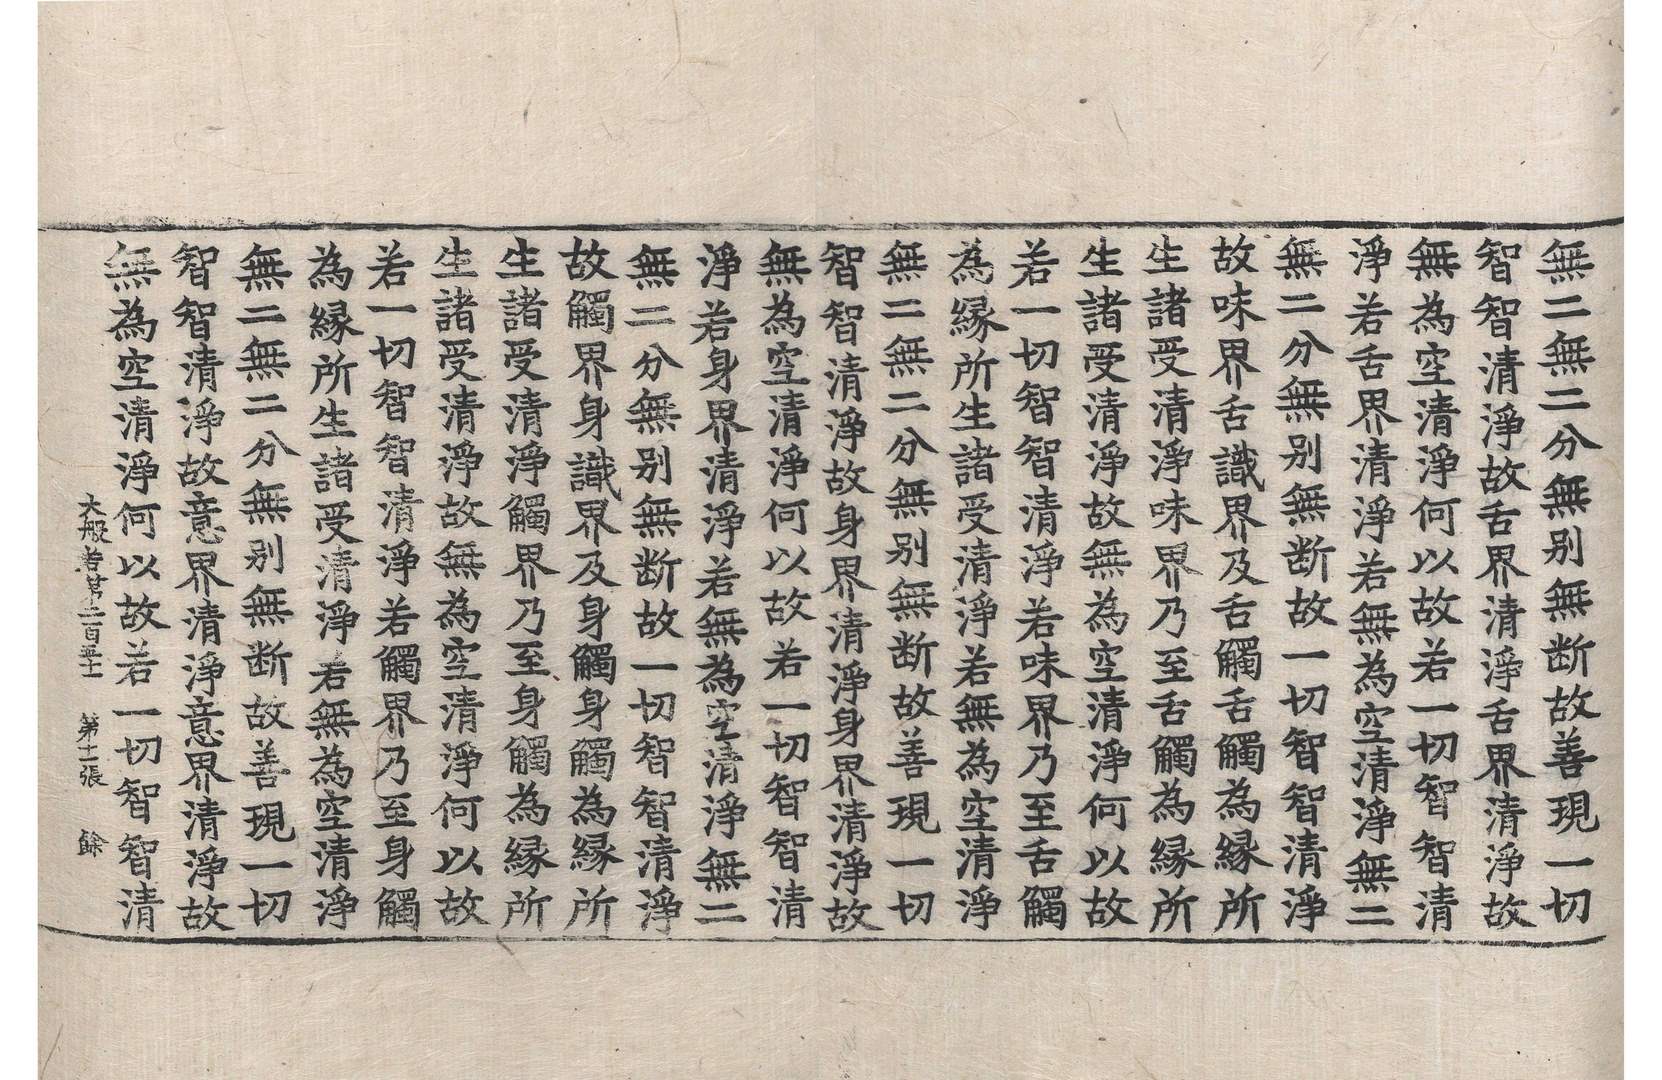 無二無二分無别無断故善現一切
智智清淨故舌界清淨舌界清淨故
無為空清淨何以故若一切智智清
淨若舌界清淨若無為空清淨無二
無二分無别無断故一切智智清淨
故味界舌識界及舌觸舌觸為縁所
生諸受清淨味界乃至舌觸為縁所
生諸受清淨故無為空清淨何以故
若一切智智清淨若味界乃至舌觸
為縁所生諸受清淨若無為空清淨
無二無二分無别無断故善現一切
智智清淨故身界清淨身界清淨故
無為空清淨何以故若一切智智清
淨若身界清淨若無為空清淨無二
無二分無别無断故一切智智清淨
故觸界身識界及身觸身觸為縁所
生諸受清淨觸界乃至身觸為縁所
生諸受清淨故無為空清淨何以故
若一切智智清淨若觸界乃至身觸
為縁所生諸受清淨若無為空清淨
無二無二分無别無断故善現一切
智智清淨故意界清淨意界清淨故
無為空清淨何以故若一切智智清
大般若第二百五十 第十張 餘